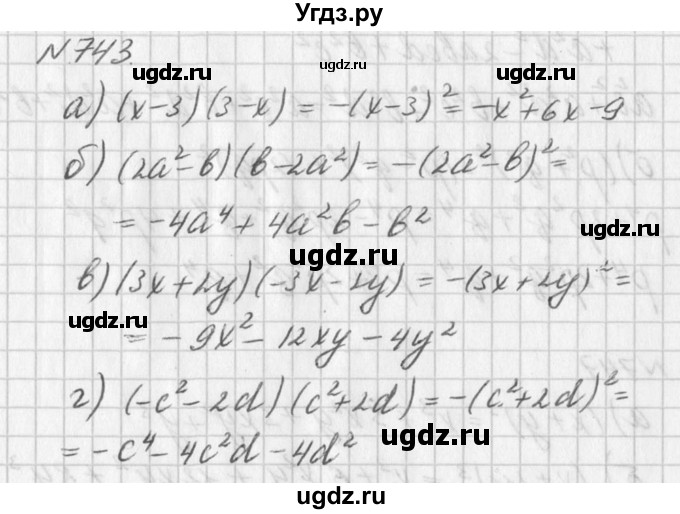 Угдз.ру
N 743.
ugdz.ru ugdz.ru ugdz.ru
а) (x-3)(3-x) = -(x-3)² = -x²+6x-9
б) (2a²-b)(b-2a²) = -(2a²-b)² =
= -4a⁴ + 4a²b - b²
ugdz.ru
ugdz.ru
в) (3x+2y)(-3x-2y) = -(3x+2y)² =
ugdz.ru
= -9x² - 12xy - 4y²
ugdz.ru
г) (-c²-2d)(c²+2d) = -(c²+2d)² =
ugdz.ru
= -c⁴ - 4c²d - 4d²
ugdz.ru